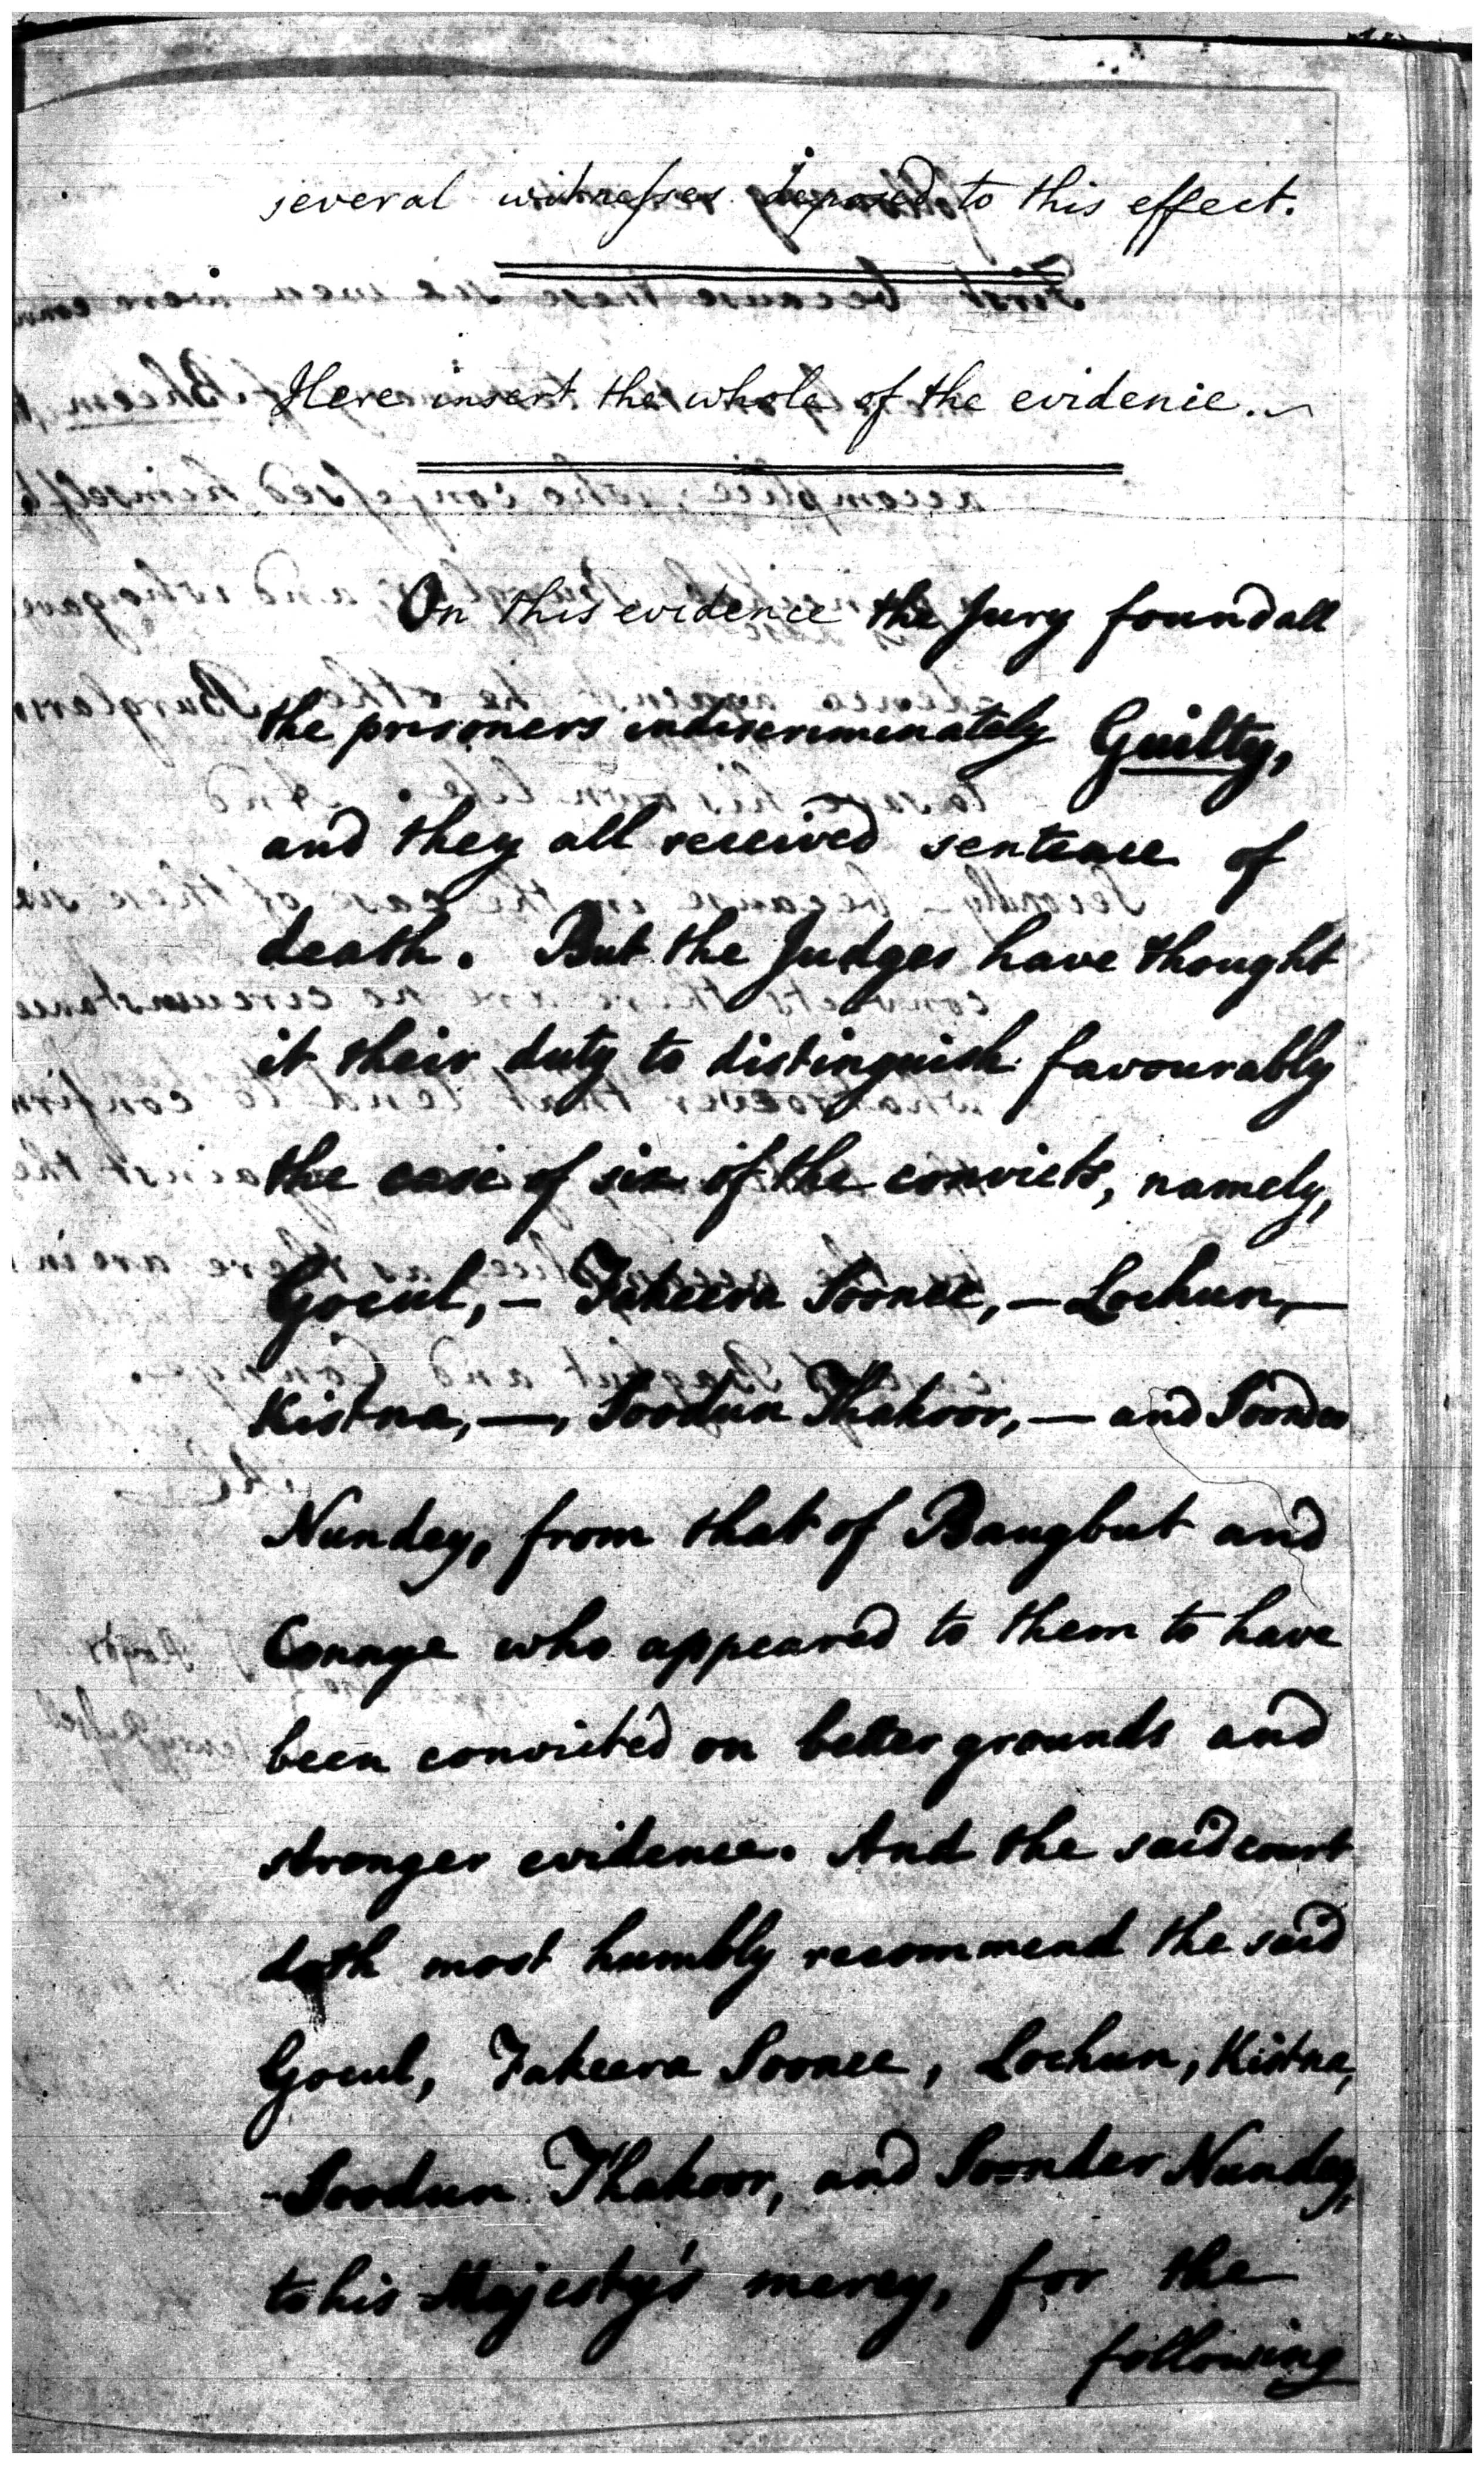 several witnesses deposed to this effect.
Here insert the whole of the evidence.
On this evidence the Jury found all
the prisoners indiscriminately Guilty,
and they all received sentence of
death. But the Judges have thought
it their duty to distinguish favourably
the case of six of the convicts, namely,
Gocul, – Fakeera Soonee, – Lochun, –
Kistna, –, Soodun Thakoor, – and Soonder
Nundey, from that of Baugbut and
Connye who appeared to them to have
been convicted on better grounds and
stronger evidence. And the said court
doth most humbly recommend the said
Gocul, Fakeera Soonee, Lochun, Kistna,
Soodun Thakoor, and Soonder Nundey,
to his Majesty's mercy, for the
following